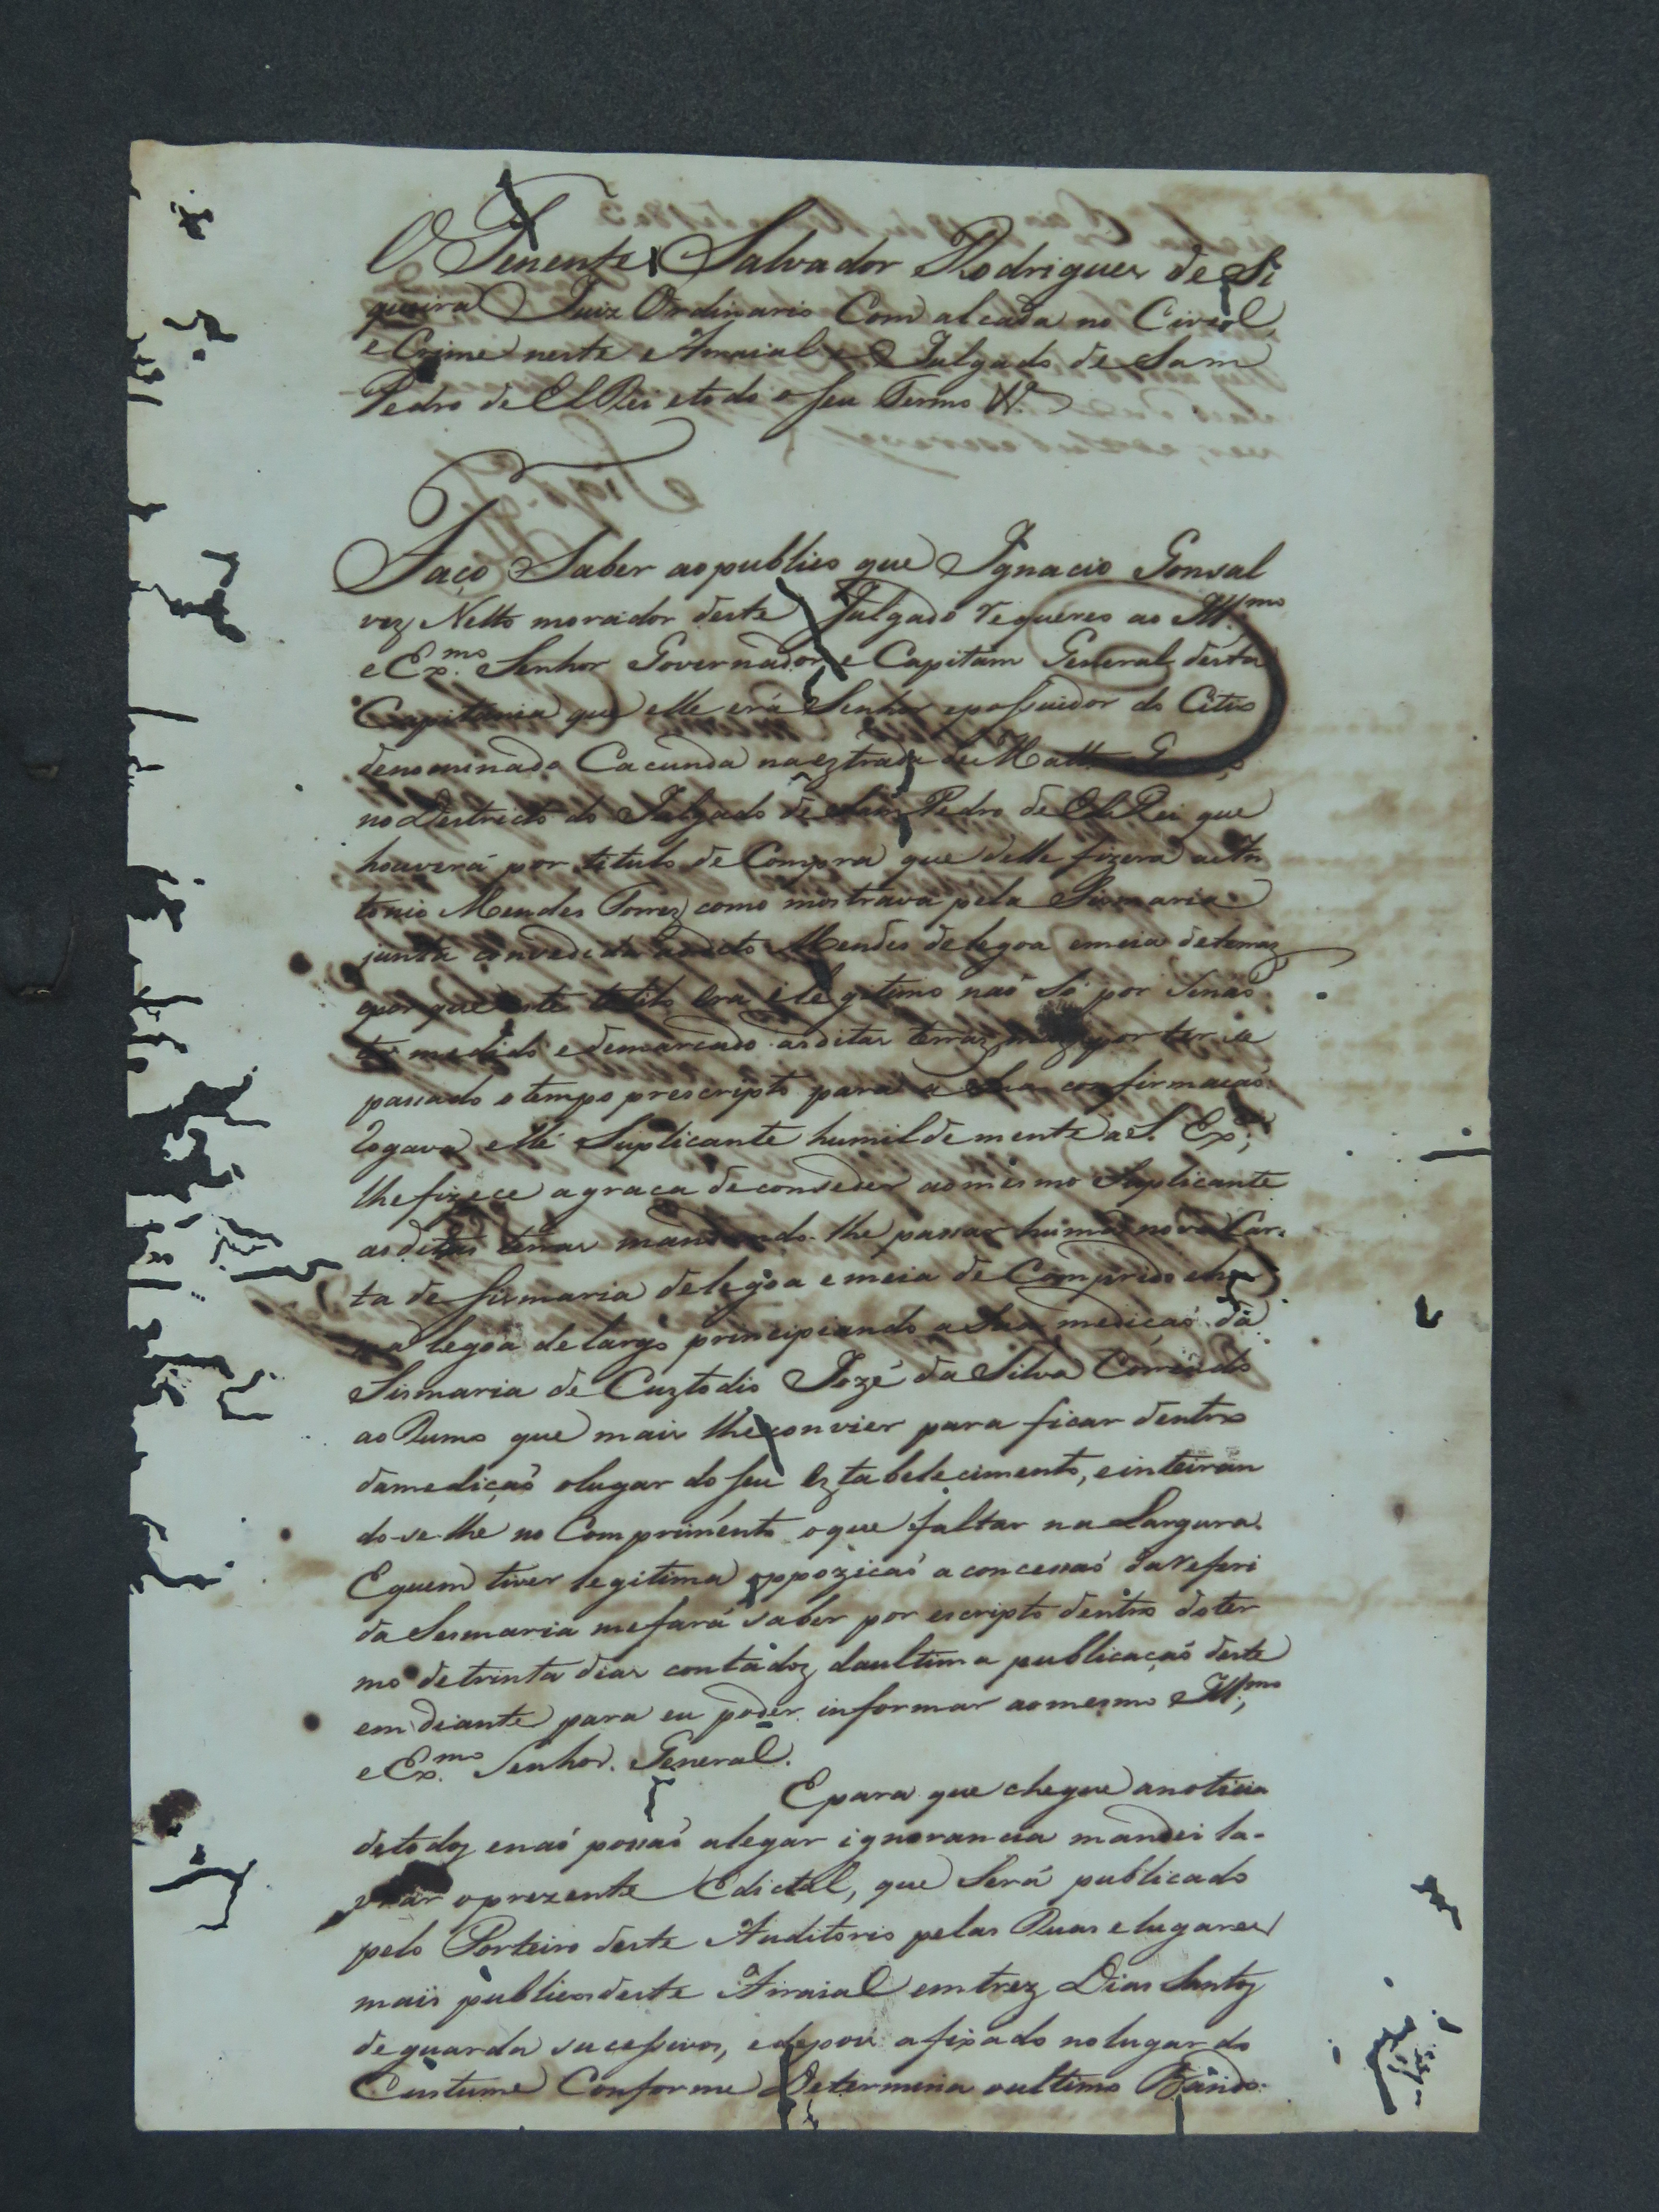 O Tenente Salvador Rodrigues de Si
queira Juiz Ordinario Com alcada no Civeol
e Crime neste Arraial e Julgado de Sam
Pedro de El Rei etodo o seu Termo &ª
Faço Saber aopublico que Ignacio Gonsal
vez Netto morador deste Julgado requereo ao Ill.mo
e Ex.mo Senhor Governador e Capitam General desta
Capitania que elle erá Senhor epossuidor do Citio
denominado Cacunda naeztrada de Matto
no Destricto do Julgado de Sam Pedro de El Rei que
houverá por titulo de Compra que delle fizera a An
tonio Mendes Torrez como mostrava pela Sismaria
junta convedida aodicto Mendes delegoa emeia deterraz
epor que este titulo era elegitimo naó Só por Senaó
ter medido edemarcado asditas terraz maz por ter se
passado o tempo prescripto para a Sua confirmacaó
rogava elle Suplicante humildemente a S. Ex.ª,
lhe fizece agraca de conseder aomesmo Suplicante
asditas terras mandando-lhe passar huma nova Car-
ta de sismaria delegoa emeia de Comprido ehu
ma legoa delargo principiando a Sua mediçaó da
Sismaria de Cuztodio Jozé da Silva Correndo
ao Rumo que mais lhe convier para ficar dentro
damediçaó olugar do seu Eztabelecimento, einteiran
do-se-lhe no Comprimento oque faltar na Largura.
Equem tiver legitima oppoziçaó a concessaó dareferi
da Sesmaria mefará saber por escripto dentro doter
mo detrinta dias contadoz daultima publicaçaó deste
em diante para eu poder informar aomesmo Ill.mo,
e Ex.mo Senhor General.
Epara que chegue anoticia
detodoz enaó possaó alegar ignorancia mandei la-
vrar oprezente Edictal, que Será publicado
pelo Porteiro deste Auditorio pelas Ruas elugares
mais publicos deste Arraial emtrez Dias Santoz
deguarda sucessivos, edepois afixado nolugar do
Custume Conforme Determina oultimo Bando.